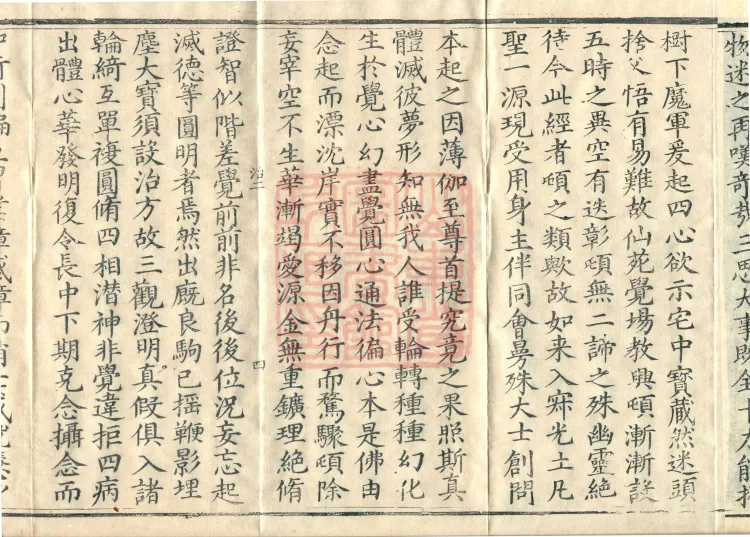 物迷之再嘆奇哉三思大事既全十力能
樹下魔軍爰起四心欲示宅中寶藏然迷頭
捨父悟有易難故仙苑覺場教興頓漸漸設
五時之異空有迭彰頓無二諦之殊幽靈絶
待今此經者頓之類歟故如来入寂光土凡
聖一源現受用身主伴同會曼殊大士創問
本起之因薄伽至尊首提究竟之果照斯真
體滅彼夢形知無我人誰受輪轉種種幻化
生於覺心幻盡覺圓心通法徧心本是佛由
念起而漂沈岸實不移因舟行而騖驟頓除
妄宰空不生華漸竭愛源金無重鑛理絶脩
治二
四
證智似階差覺前前非名後後位況妄忘起
滅德等圓明者焉然出廐良駒已揺鞭影埋
塵大寶須設治方故三觀澄明真假俱入諸
輪綺互單複圓脩四相潛神非覺違拒四病
出體心華發明復令長中下期克念攝念而